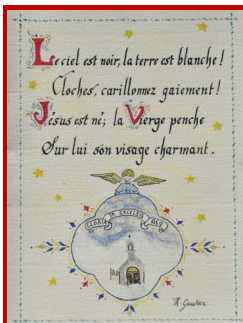 Le ciel est noir, la terre est blanche !
Cloches, carillonnez gaiement !
Jésus est né ; la Vierge penche
Sur lui son visage charmant.
GLORIA IN EXCELSIS DEO